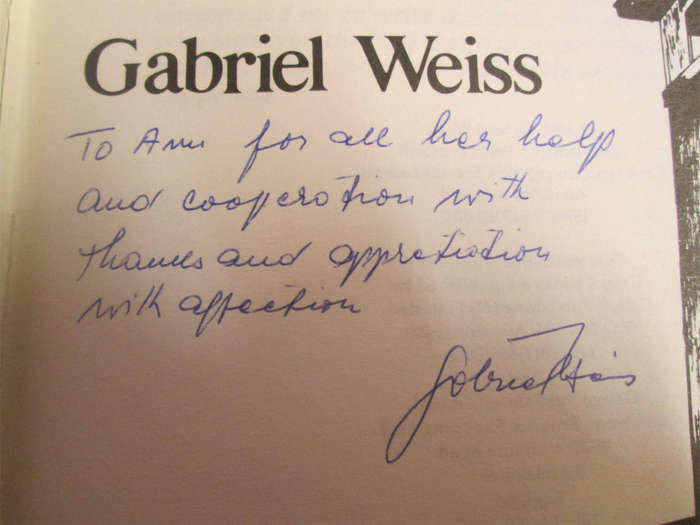 Gabriel Weiss
To Ann for all her help
and cooperation with
thanks and appretiation
with affection
Gabriel Weiss